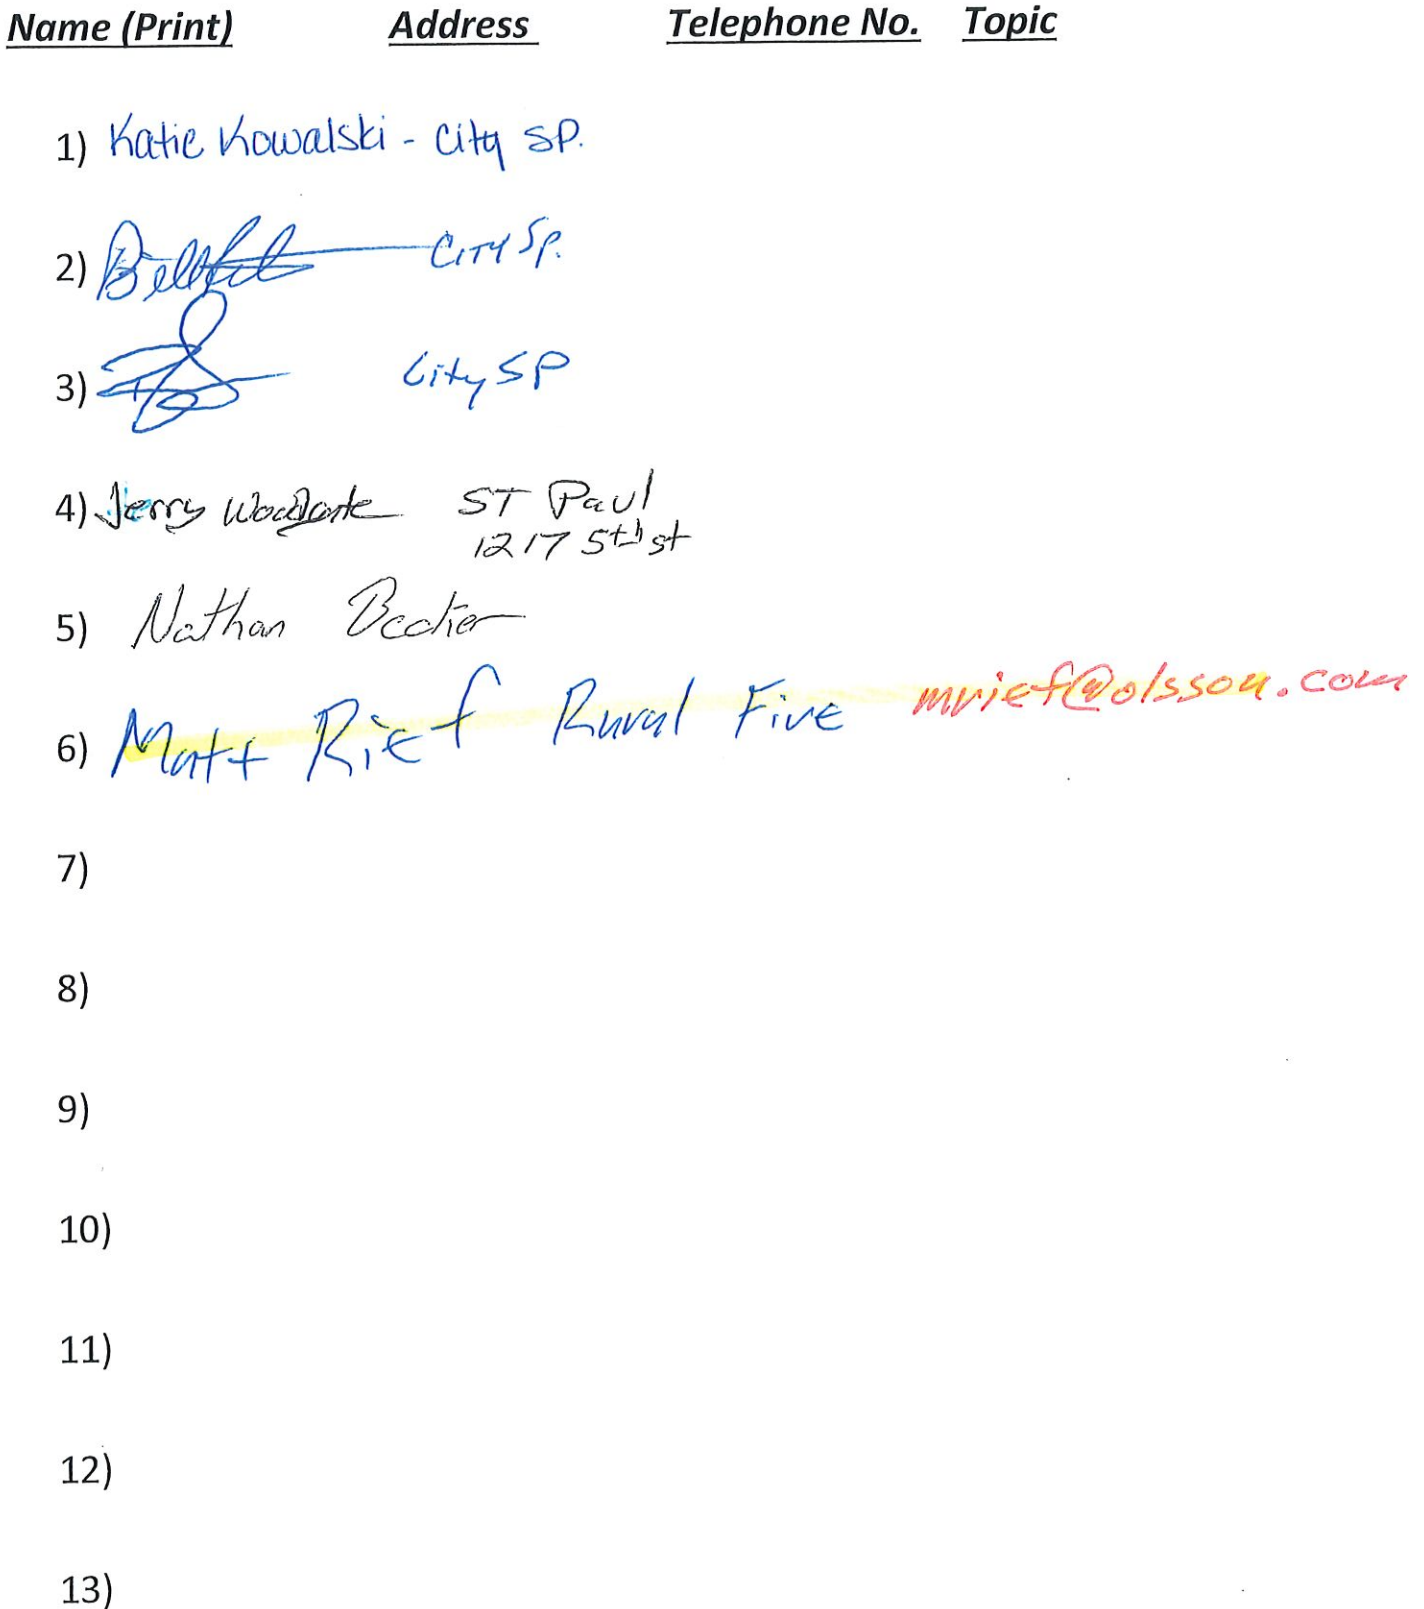 Name (Print) Address Telephone No. Topic
1) Katie Kowalski - City SP.
2) CITY SP.
3) City SP
4) Jerry ST Paul
1217 5th st
5) Nathan
6) Matt Rief Rural Fire mrief@olsson.com
7)
8)
9)
10)
11)
12)
13)